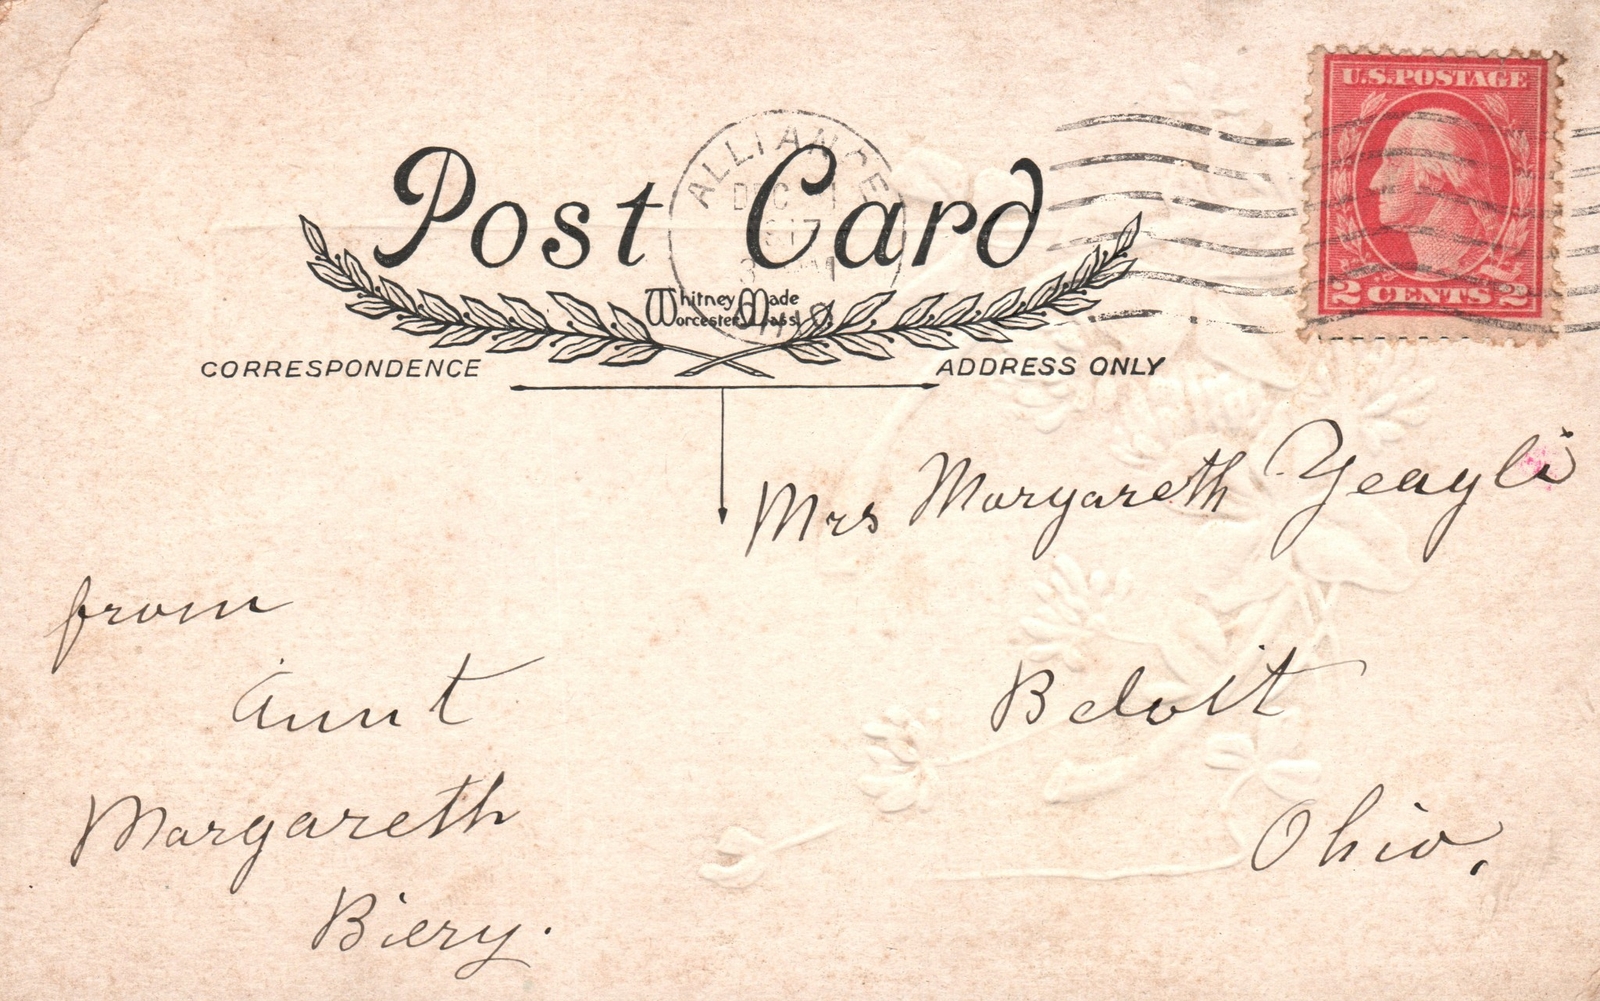 U.S. POSTAGE
2 CENTS 2
ALLIANCE
DEC
Post Card
Whitney Made
Worcester, Mass
CORRESPONDENCE
ADDRESS ONLY
Mrs Margareth Yeagli
Beloit
Ohio,
from
Aunt
Margareth
Biery.